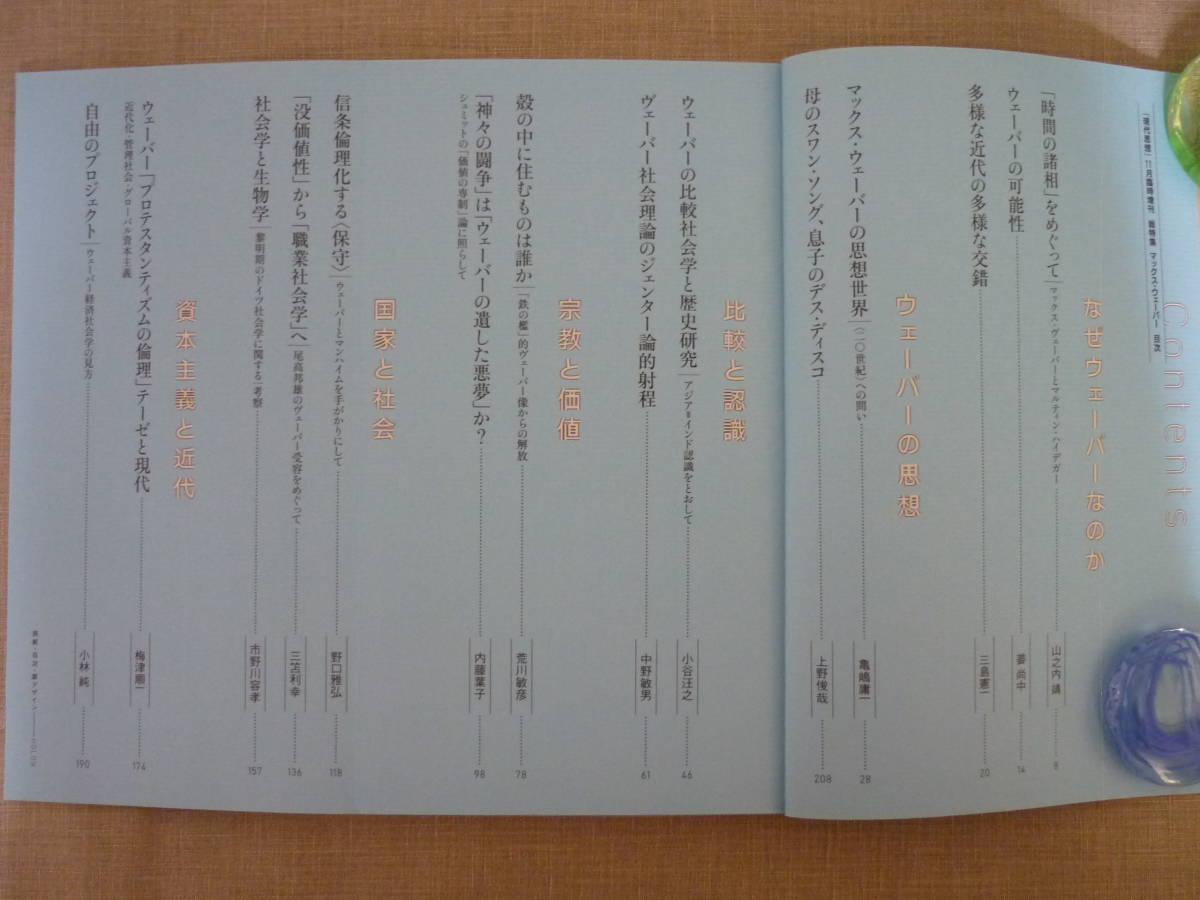 「現代思想」11月臨時増刊　総特集　マックス・ウェーバー　目次
Contents
なぜウェーバーなのか
「時間の諸相」をめぐって｜マックス・ヴェーバーとマルティン・ハイデガー……山之内 靖……8
ウェーバーの可能性……姜 尚中……14
多様な近代の多様な交錯……三島憲一……20
ウェーバーの思想
マックス・ウェーバーの思想世界｜〈二〇世紀〉への問い……亀嶋庸一……28
母のスワン・ソング、息子のデス・ディスコ……上野俊哉……208
比較と認識
ウェーバーの比較社会学と歴史研究｜アジア＝インド認識をとおして……小谷汪之……46
ヴェーバー社会理論のジェンダー論的射程……中野敏男……61
宗教と価値
殻の中に住むものは誰か｜「鉄の檻」的ヴェーバー像からの解放……荒川敏彦……78
「神々の闘争」は「ウェーバーの遺した悪夢」か？……内藤葉子……98
シュミットの「価値の専制」論に照らして
国家と社会
信条倫理化する〈保守〉｜ウェーバーとマンハイムを手がかりにして……野口雅弘……118
「没価値性」から「職業社会学」へ｜尾高邦雄のヴェーバー受容をめぐって……三笘利幸……136
社会学と生物学｜黎明期のドイツ社会学に関する一考察……市野川容孝……157
資本主義と近代
ウェーバー「プロテスタンティズムの倫理」テーゼと現代……梅津順一……174
近代化・管理社会・グローバル資本主義
自由のプロジェクト｜ウェーバー経済社会学の見方……小林 純……190